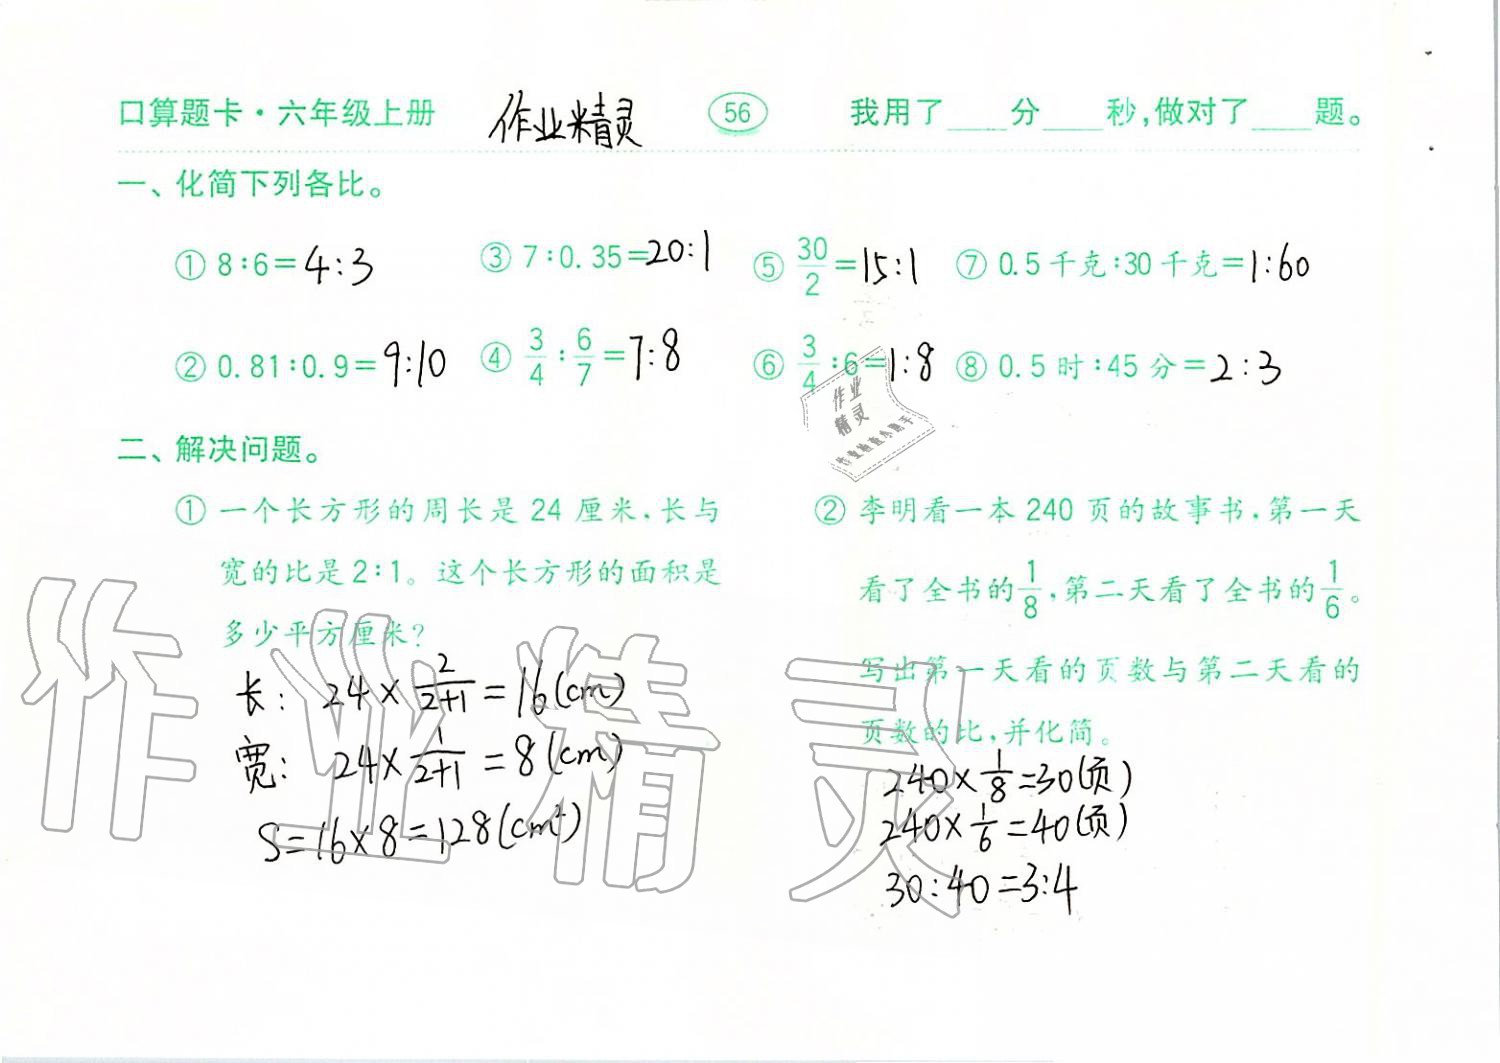 口算题卡·六年级上册 作业精灵 56 我用了____分____秒,做对了____题。
一、化简下列各比。
① 8:6=4:3 ③ 7:0.35=20:1 ⑤ 30/2=15:1 ⑦ 0.5千克:30千克=1:60
② 0.81:0.9=9:10 ④ 3/4:6/7=7:8 ⑥ 3/4:6=1:8 ⑧ 0.5时:45分=2:3
作业
精灵
作业检查小助手
二、解决问题。
① 一个长方形的周长是24厘米,长与
宽的比是2:1。这个长方形的面积是
多少平方厘米?
长: 24×2/(2+1)=16(cm)
宽: 24×1/(2+1)=8(cm)
S=16×8=128(cm²)
② 李明看一本240页的故事书,第一天
看了全书的1/8,第二天看了全书的1/6。
写出第一天看的页数与第二天看的
页数的比,并化简。
240×1/8=30(页)
240×1/6=40(页)
30:40=3:4
作业精灵